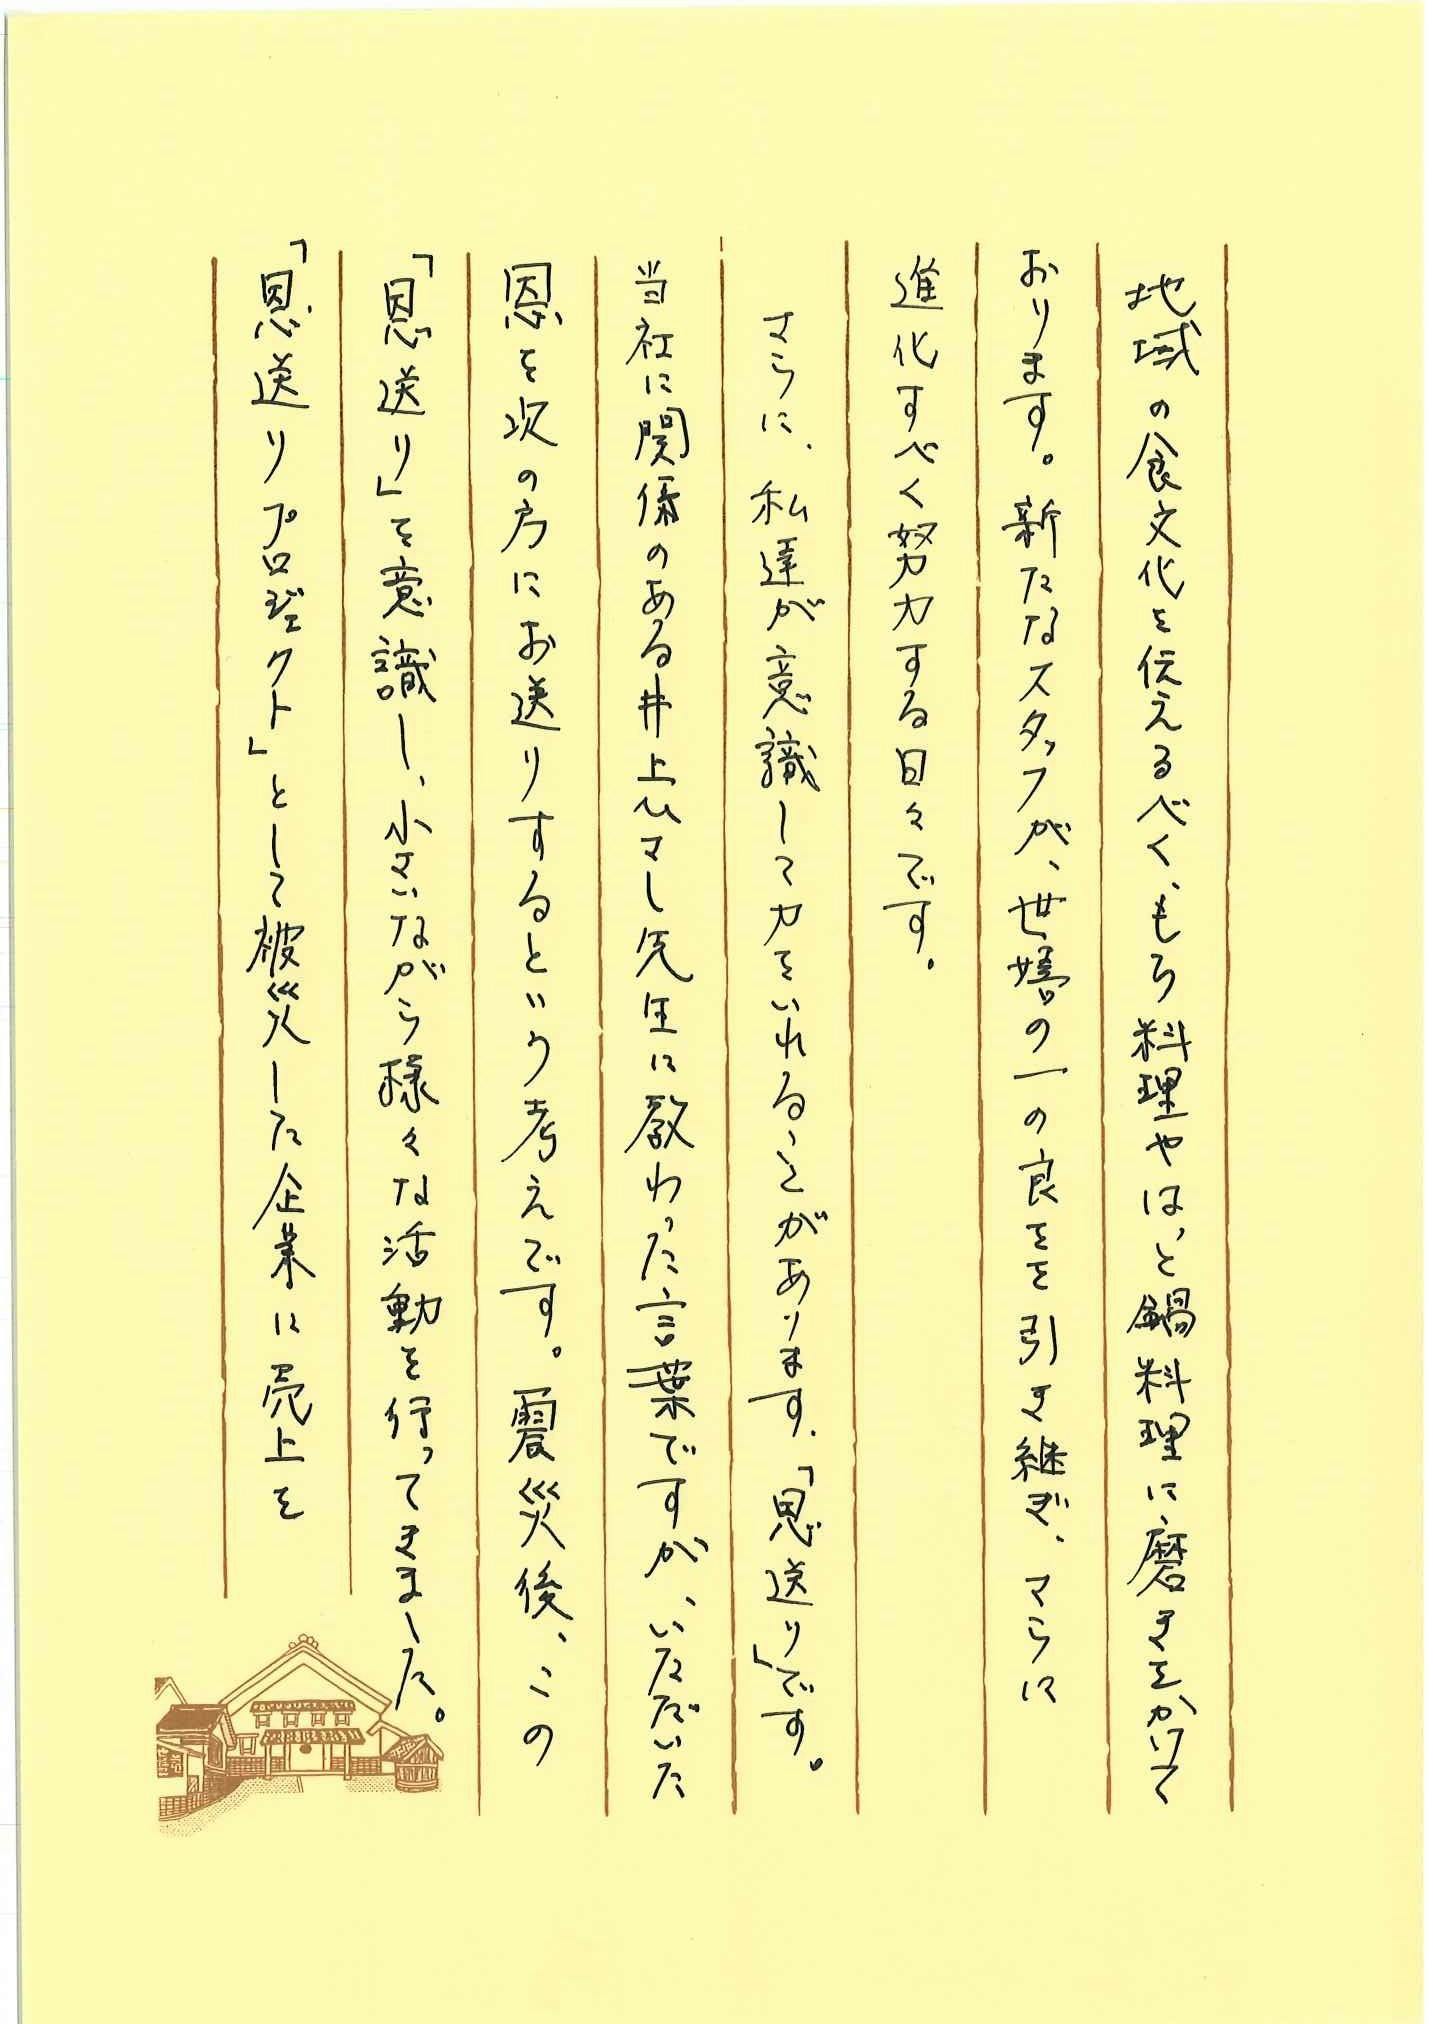 地域の食文化を伝えるべく、もち料理やはっと鍋料理に磨きをかけて
おります。新たなスタッフが、世嬉の一の良さを引き継ぎ、さらに
進化すべく努力する日々です。
さらに、私達が意識して力をいれることがあります、「恩送り」です。
当社に関係のある井上ひさし先生に教わった言葉ですが、いただいた
恩を次の方にお送りするという考えです。震災後、この
「恩送り」を意識し、小さいながら様々な活動を行ってきました。
「恩送りプロジェクト」として被災した企業に売上を